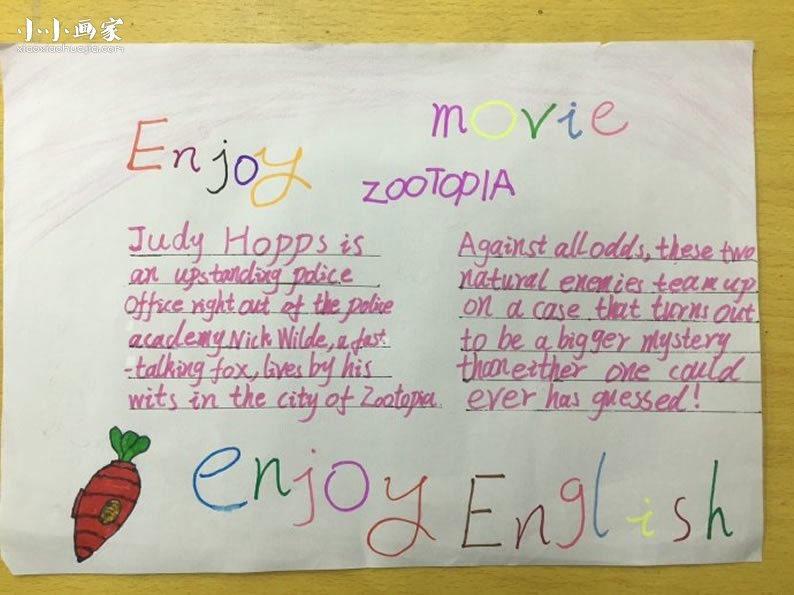 小小画家
xiaoxiaohuajia.com
Enjoy movie
ZOOTOPIA
Judy Hopps is
an upstanding police
Office right out of the police
academy Nick Wilde, a fast
-talking fox, lives by his
wits in the city of Zootopia
Against all odds, these two
natural enemies team up
on a case that turns out
to be a bigger mystery
than either one could
ever has guessed!
enjoy English